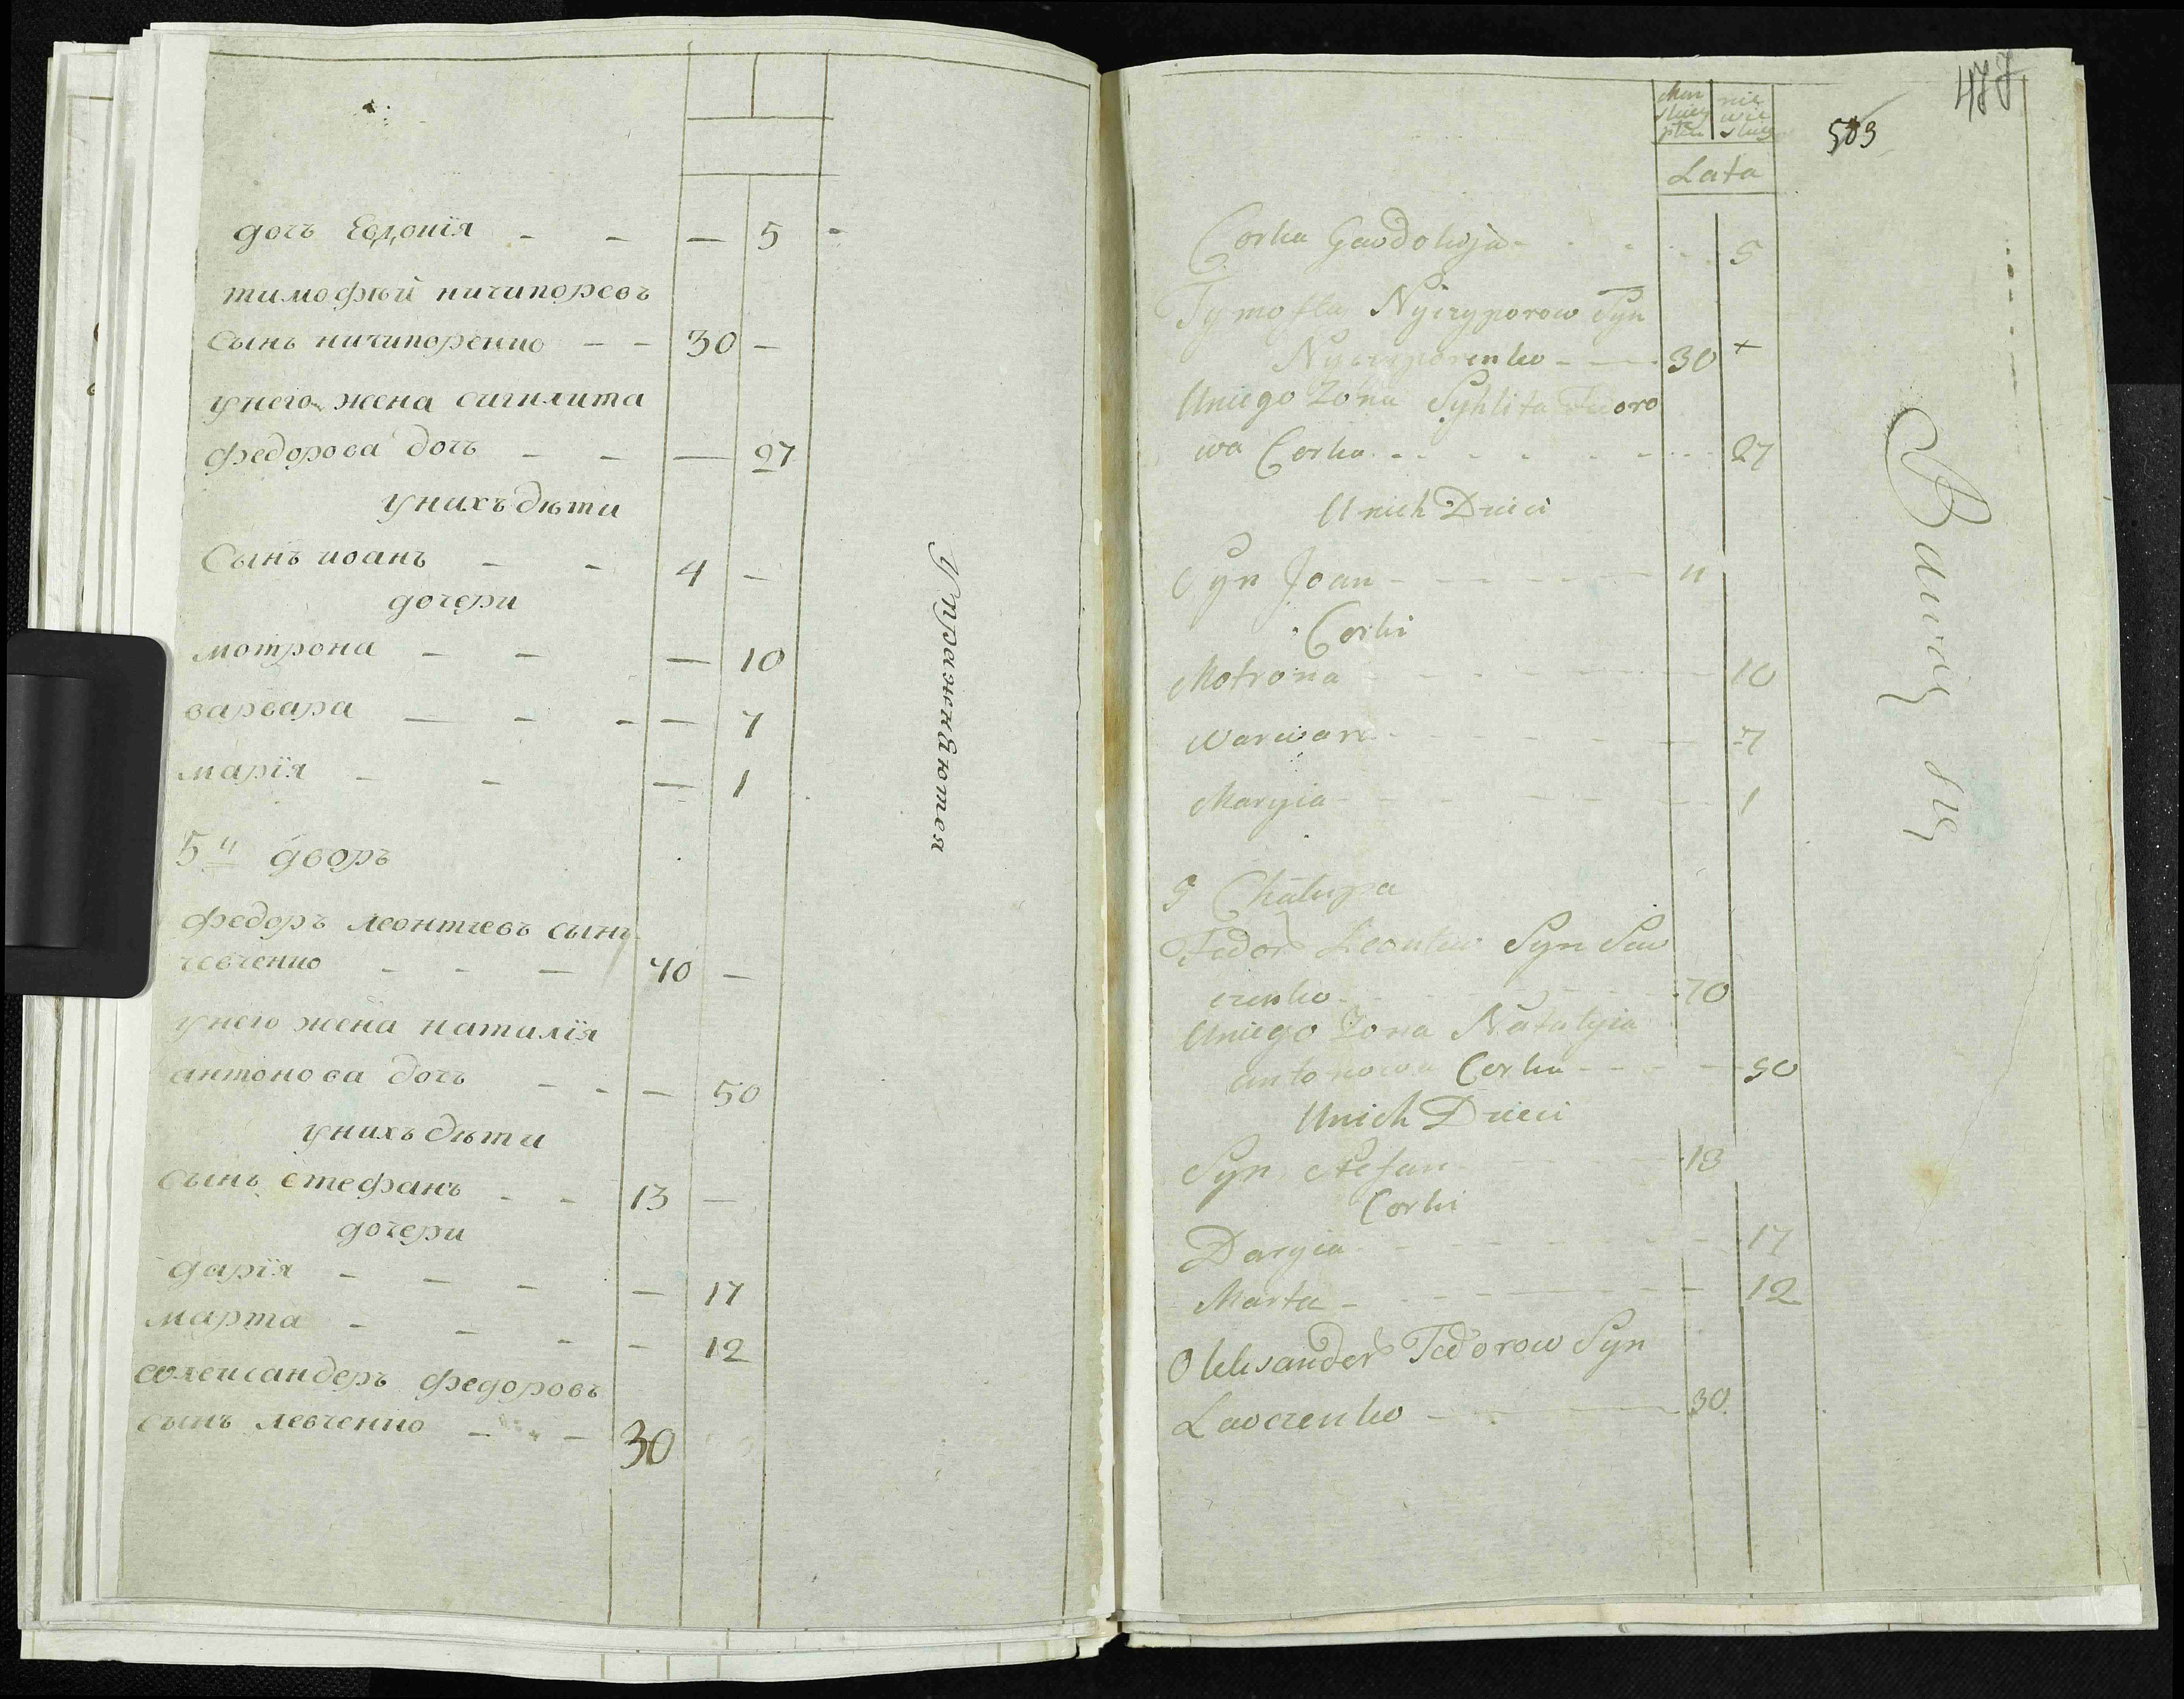 дочь Евдокїя - - — 5 -
тимофѣй ничипоровъ
сынъ ничипоренко - - 30 -
унего жена сигклита
федорова дочь - - — 27
унихъ дѣти
Сынъ иоанъ - - 4 -
дочери
мотрона - - — 10
варвара — - - — 7
марїя - - — 1
5й дворъ
федоръ леонтиевъ сынъ
левченко - - — 70 —
унего жена наталїя
антонова дочь - - — 50
унихъ дѣти
сынъ стефанъ - - 13 —
дочери
дарїя - - - — 17
марта - - - - 12
олександеръ федоровъ
сынъ левченко - - 30
Упражняются
Męz nie
Lata
583
477
Corka Gawdokija - - - 5
Tymofiy Nyczyporow Syn
Nyczyporenko - — 30 +
Uniego Zona Syhlita Fedoro
wa Corka - - - - - 27
Unich Dzieci
Syn Joan - - - - - 4
Corki
Motrona - - - - 10
Warwara - - - - 7
Maryia - - - - 1
5 Chałupa
Fedor Leontiew Syn Lew
czenko - - - 70
Uniego Zona Natalyia
antonowa Corka - - - 50
Unich Dzieci
Syn Stefan - - - 13
Corki
Daryia - - - - 17
Marta - - - - 12
Oleksander Fedorow Syn
Lawczenko - - - 30
Bawią się